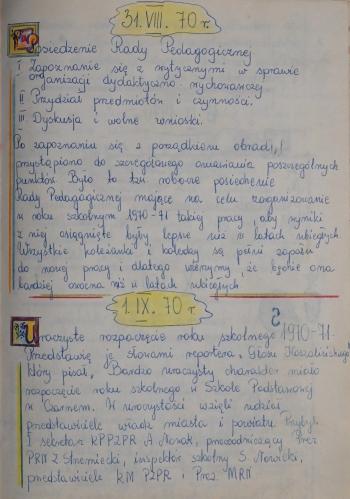 31. VIII. 70 r.
Posiedzenie Rady Pedagogicznej
I Zapoznanie się z wytycznymi w sprawie
organizacji dydaktyczno wychowawczej
II Przydział przedmiotów i czynności.
III Dyskusja i wolne wnioski.
Po zapoznaniu się z porządkiem obrad,
przystąpiono do szczegółowego omawiania poszczególnych
punktów. Było to tzw. robocze posiedzenie
Rady Pedagogicznej mające na celu zorganizowanie
w roku szkolnym 1970-71 takiej pracy, aby wyniki
z niej osiągnięte były lepsze niż w latach ubiegłych.
Wszystkie koleżanki i koledzy są pełni zapału
do nowej pracy i dlatego wierzymy, że będzie ona
bardziej owocna niż w latach ubiegłych
1. IX. 70 r.
Uroczyste rozpoczęcie roku szkolnego 1970-71.
Przedstawię je słowami reportera „Głosu Koszalińskiego"
który pisał, Bardzo uroczysty charakter miało
rozpoczęcie roku szkolnego w Szkole Podstawowej
w Czarnem. W uroczystości wzięli udział
przedstawiciele władz miasta i powiatu. Przybyli
I sekretarz KPPZPR A. Nowak, przewodniczący Prez
PRN Z. Stremiecki, inspektor szkolny S. Nowicki,
przedstawiciele KM PZPR i Prez MRN